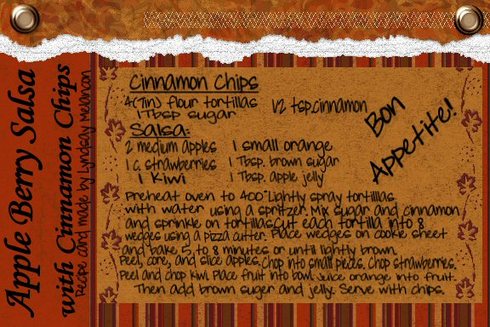 Apple Berry Salsa
with Cinnamon Chips
Recipe card made by Lyndsay Melancon
Cinnamon Chips
4(7in) flour tortillas 1/2 tsp.cinnamon
1Tbsp sugar
Bon
Appetite!
Salsa:
2 medium apples 1 small orange
1 c. strawberries 1 Tbsp. brown sugar
1 Kiwi 1 Tbsp. apple jelly
Preheat oven to 400° Lightly spray tortillas
with water using a spritzer. Mix sugar and cinnamon
and sprinkle on tortillas.Cut each tortilla into 8
wedges using a pizza cutter. Place wedges on cookie sheet
and bake 5 to 8 minutes or until lightly brown.
Peel, core, and slice apples. Chop into small pieces. Chop strawberries.
Peel and chop kiwi. Place fruit into bowl. Juice orange into fruit.
Then add brown suger and jelly. Serve with chips.